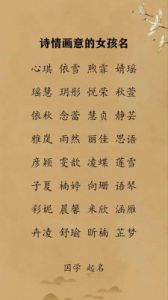 诗情画意的女孩名
心琪 依雪 煦霏 婧瑶
瑶慧 玥彤 悦荣 秋萱
依秋 念蕾 慧贞 静芸
雅岚 雨然 丽佳 思语
彦颖 雯歆 凌蝶 莲雪
子夏 楠婷 向珊 语琴
彩妮 晨馨 来欣 涵雁
卉凌 舒瑜 昕楠 芷梦
国学 起名